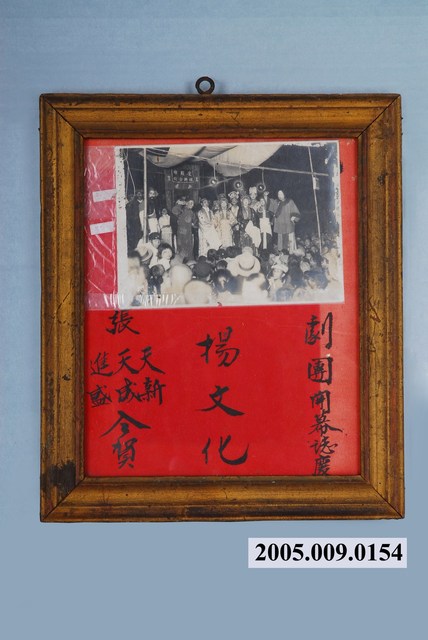 劇團開幕誌慶
揚文化
張
天新
天成
進盛
仝賀
2005.009.0154